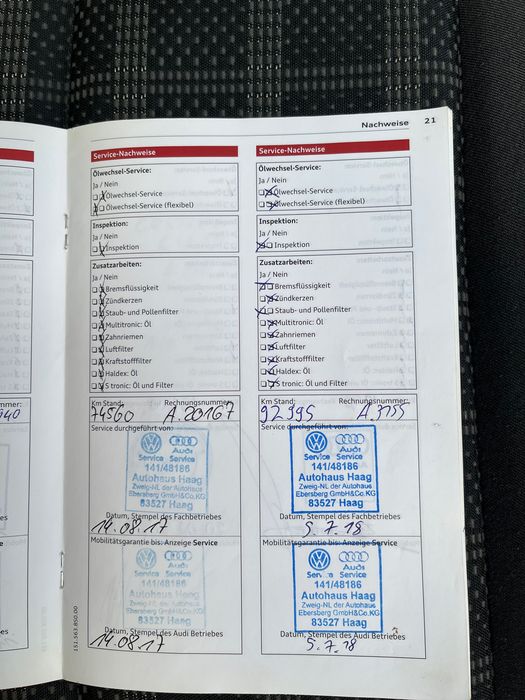 Nachweise 21
Service-Nachweise
Ölwechsel-Service:
Ja / Nein
Ölwechsel-Service
Ölwechsel-Service (flexibel)
Inspektion:
Ja / Nein
Inspektion
Zusatzarbeiten:
Ja / Nein
Bremsflüssigkeit
Zündkerzen
Staub- und Pollenfilter
Multitronic: Öl
Zahnriemen
Luftfilter
Kraftstofffilter
Haldex: Öl
S tronic: Öl und Filter
Km Stand: Rechnungsnummer:
74560 A.20167
Service durchgeführt von:
Audi
Service Service
141/48186
Autohaus Haag
Zweig-NL der Autohaus
Ebersberg GmbH&Co.KG
83527 Haag
Datum, Stempel des Fachbetriebes
14.08.17
Mobilitätsgarantie bis: Anzeige Service
Audi
Service Service
141/48186
Autohaus Haag
Zweig-NL der Autohaus
Ebersberg GmbH&Co.KG
83527 Haag
Datum, Stempel des Audi Betriebes
14.08.17
Service-Nachweise
Ölwechsel-Service:
Ja / Nein
Ölwechsel-Service
Ölwechsel-Service (flexibel)
Inspektion:
Ja / Nein
Inspektion
Zusatzarbeiten:
Ja / Nein
Bremsflüssigkeit
Zündkerzen
Staub- und Pollenfilter
Multitronic: Öl
Zahnriemen
Luftfilter
Kraftstofffilter
Haldex: Öl
S tronic: Öl und Filter
Km Stand: Rechnungsnummer:
92995 A.3155
Service durchgeführt von:
Audi
Service Service
141/48186
Autohaus Haag
Zweig-NL der Autohaus
Ebersberg GmbH&Co.KG
83527 Haag
Datum, Stempel des Fachbetriebes
5.7.18
Mobilitätsgarantie bis: Anzeige Service
Audi
Service Service
141/48186
Autohaus Haag
Zweig-NL der Autohaus
Ebersberg GmbH&Co.KG
83527 Haag
Datum, Stempel des Audi Betriebes
5.7.18
151.563.850.00